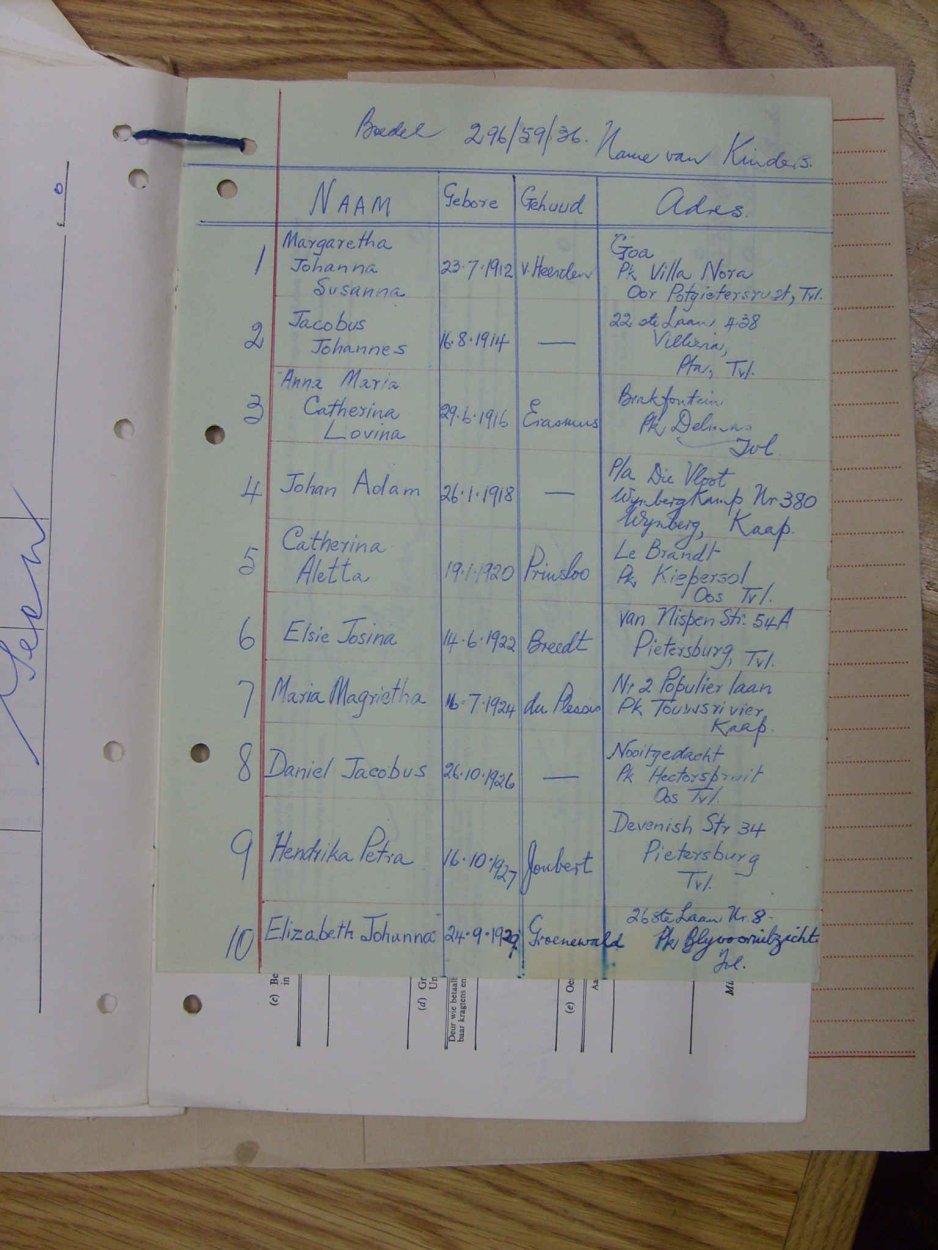 Boedel 296/59/36. Name van Kinders.
NAAM Gebore Gehuud Adres.
1 Margaretha Johanna Susanna 23.7.1912 v. Heerden Goa
Pk Villa Nora
Oor Potgietersrust, Tvl.
2 Jacobus Johannes 16.8.1914 — 22ste Laan 438
Villieria,
Pta, Tvl.
3 Anna Maria Catherina Lovina 29.6.1916 Erasmus Brakfontein
Pk Delmas
Tvl
4 Johan Adam 26.1.1918 — P/a Die Vloot
Wynberg Kamp Nr 380
Wynberg, Kaap.
5 Catherina Aletta 19.1.1920 Prinsloo Le Brandt
Pk Kiepersol
Oos Tvl.
6 Elsie Josina 14.6.1922 Breedt van Nispen Str. 54A
Pietersburg, Tvl.
7 Maria Magrietha 16.7.1924 du Plessis Nr 2 Populier laan
Pk Touwsrivier
Kaap.
8 Daniel Jacobus 26.10.1926 — Nooitgedacht
Pk Hectorspruit
Oos Tvl.
9 Hendrika Petra 16.10.1927 Joubert Devenish Str 34
Pietersburg
Tvl.
10 Elizabeth Johanna 24.9.1929 Groenewald 26ste Laan Nr. 8
Pk Blyvooruitzicht
Tvl.
(c) Be
in
(d) Gr
Un
Deur wie betaal
baar kragtens en
(e) Oe
Aa